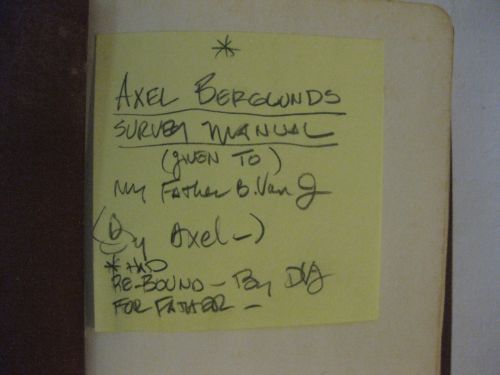 *
AXEL BERGLUNDS
SURVEY MANUAL
(GIVEN TO)
My FATHER B. Van J
(By Axel-)
* AND
RE-BOUND - By DVJ
FOR FATHER -